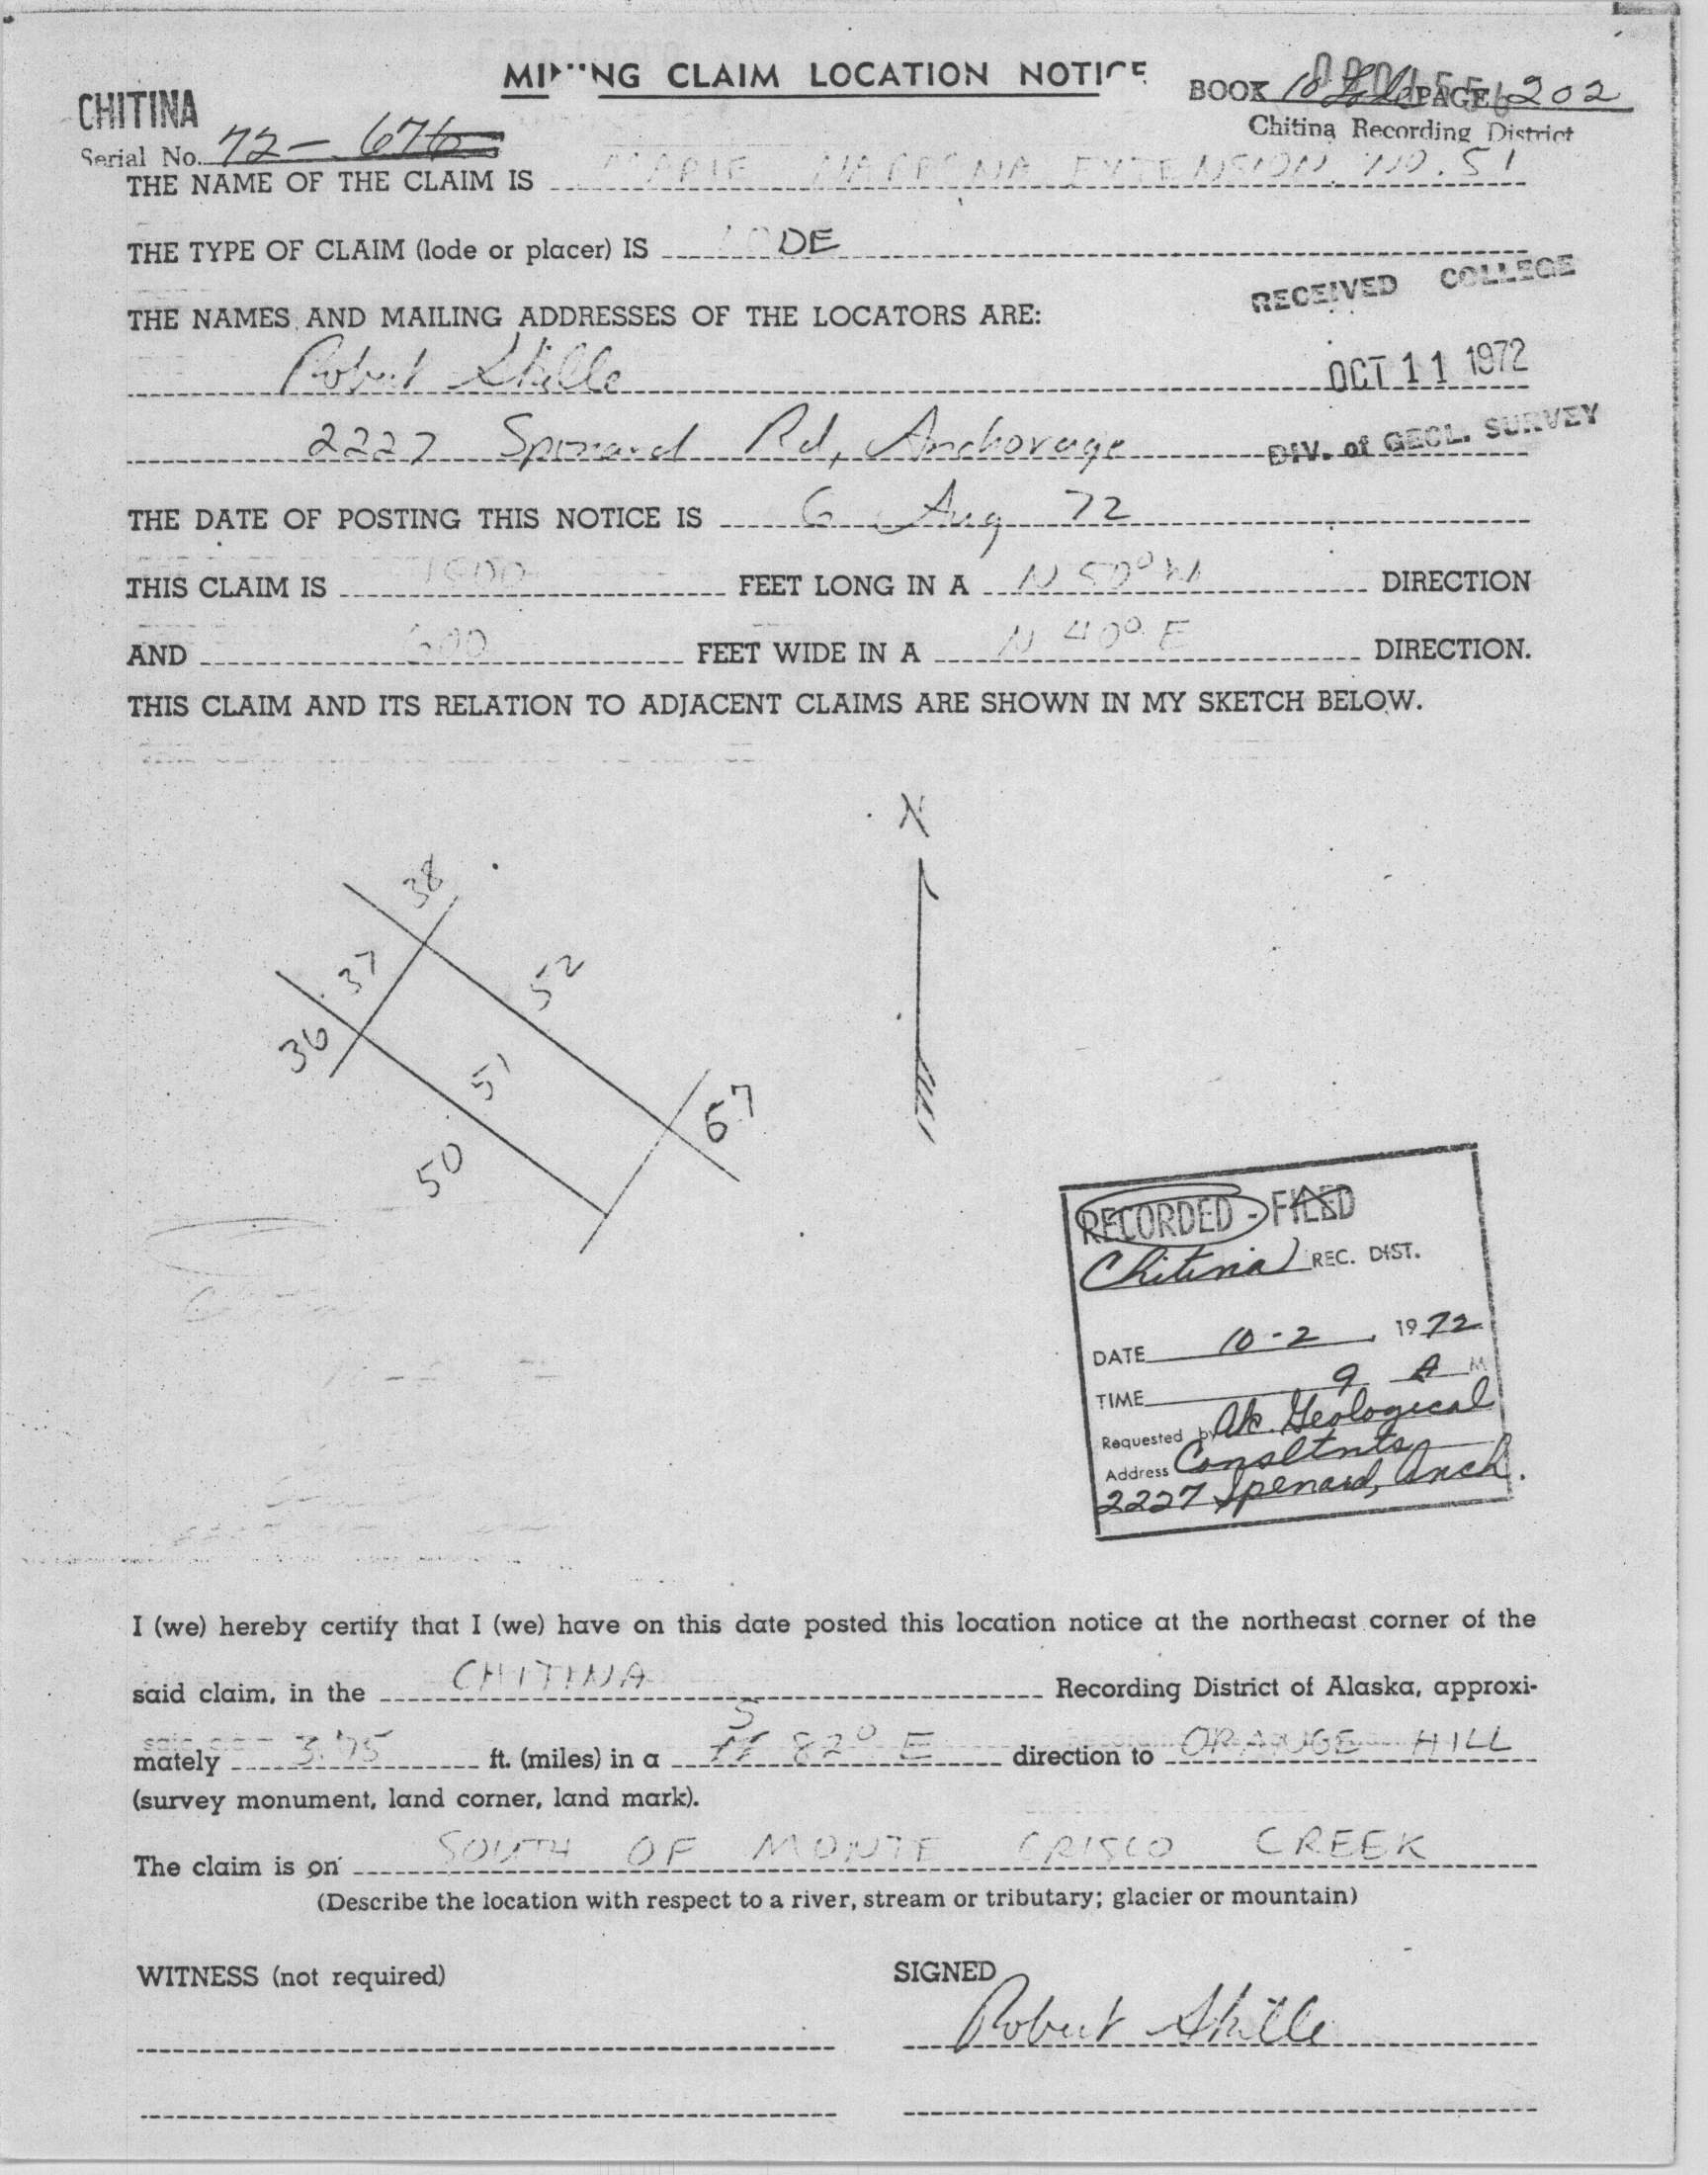 MINING CLAIM LOCATION NOTICE
BOOK 10 PAGE 202
Chitina Recording District
CHITINA
Serial No. 72-676
THE NAME OF THE CLAIM IS EXTENSION NO. 51
THE TYPE OF CLAIM (lode or placer) IS LODE
RECEIVED COLLEGE
THE NAMES AND MAILING ADDRESSES OF THE LOCATORS ARE:
Robert Skille
OCT 11 1972
2227 Spenard Rd, Anchorage
DIV. of GEOL. SURVEY
THE DATE OF POSTING THIS NOTICE IS 6 Aug 72
THIS CLAIM IS 1500 FEET LONG IN A N 50° W DIRECTION
AND 600 FEET WIDE IN A N 40° E DIRECTION.
THIS CLAIM AND ITS RELATION TO ADJACENT CLAIMS ARE SHOWN IN MY SKETCH BELOW.
N
38
37
52
36
51
67
50
RECORDED - FILED
Chitina REC. DIST.
DATE 10-2, 1972
TIME 9 A M
Requested by Ak. Geological
Address Consltnts
2227 Spenard, Anch.
I (we) hereby certify that I (we) have on this date posted this location notice at the northeast corner of the
said claim, in the CHITINA Recording District of Alaska, approxi-
mately 3.75 ft. (miles) in a S 82° E direction to ORANGE HILL
(survey monument, land corner, land mark).
The claim is on SOUTH OF MONTE CRISCO CREEK
(Describe the location with respect to a river, stream or tributary; glacier or mountain)
WITNESS (not required)
SIGNED
Robert Skille